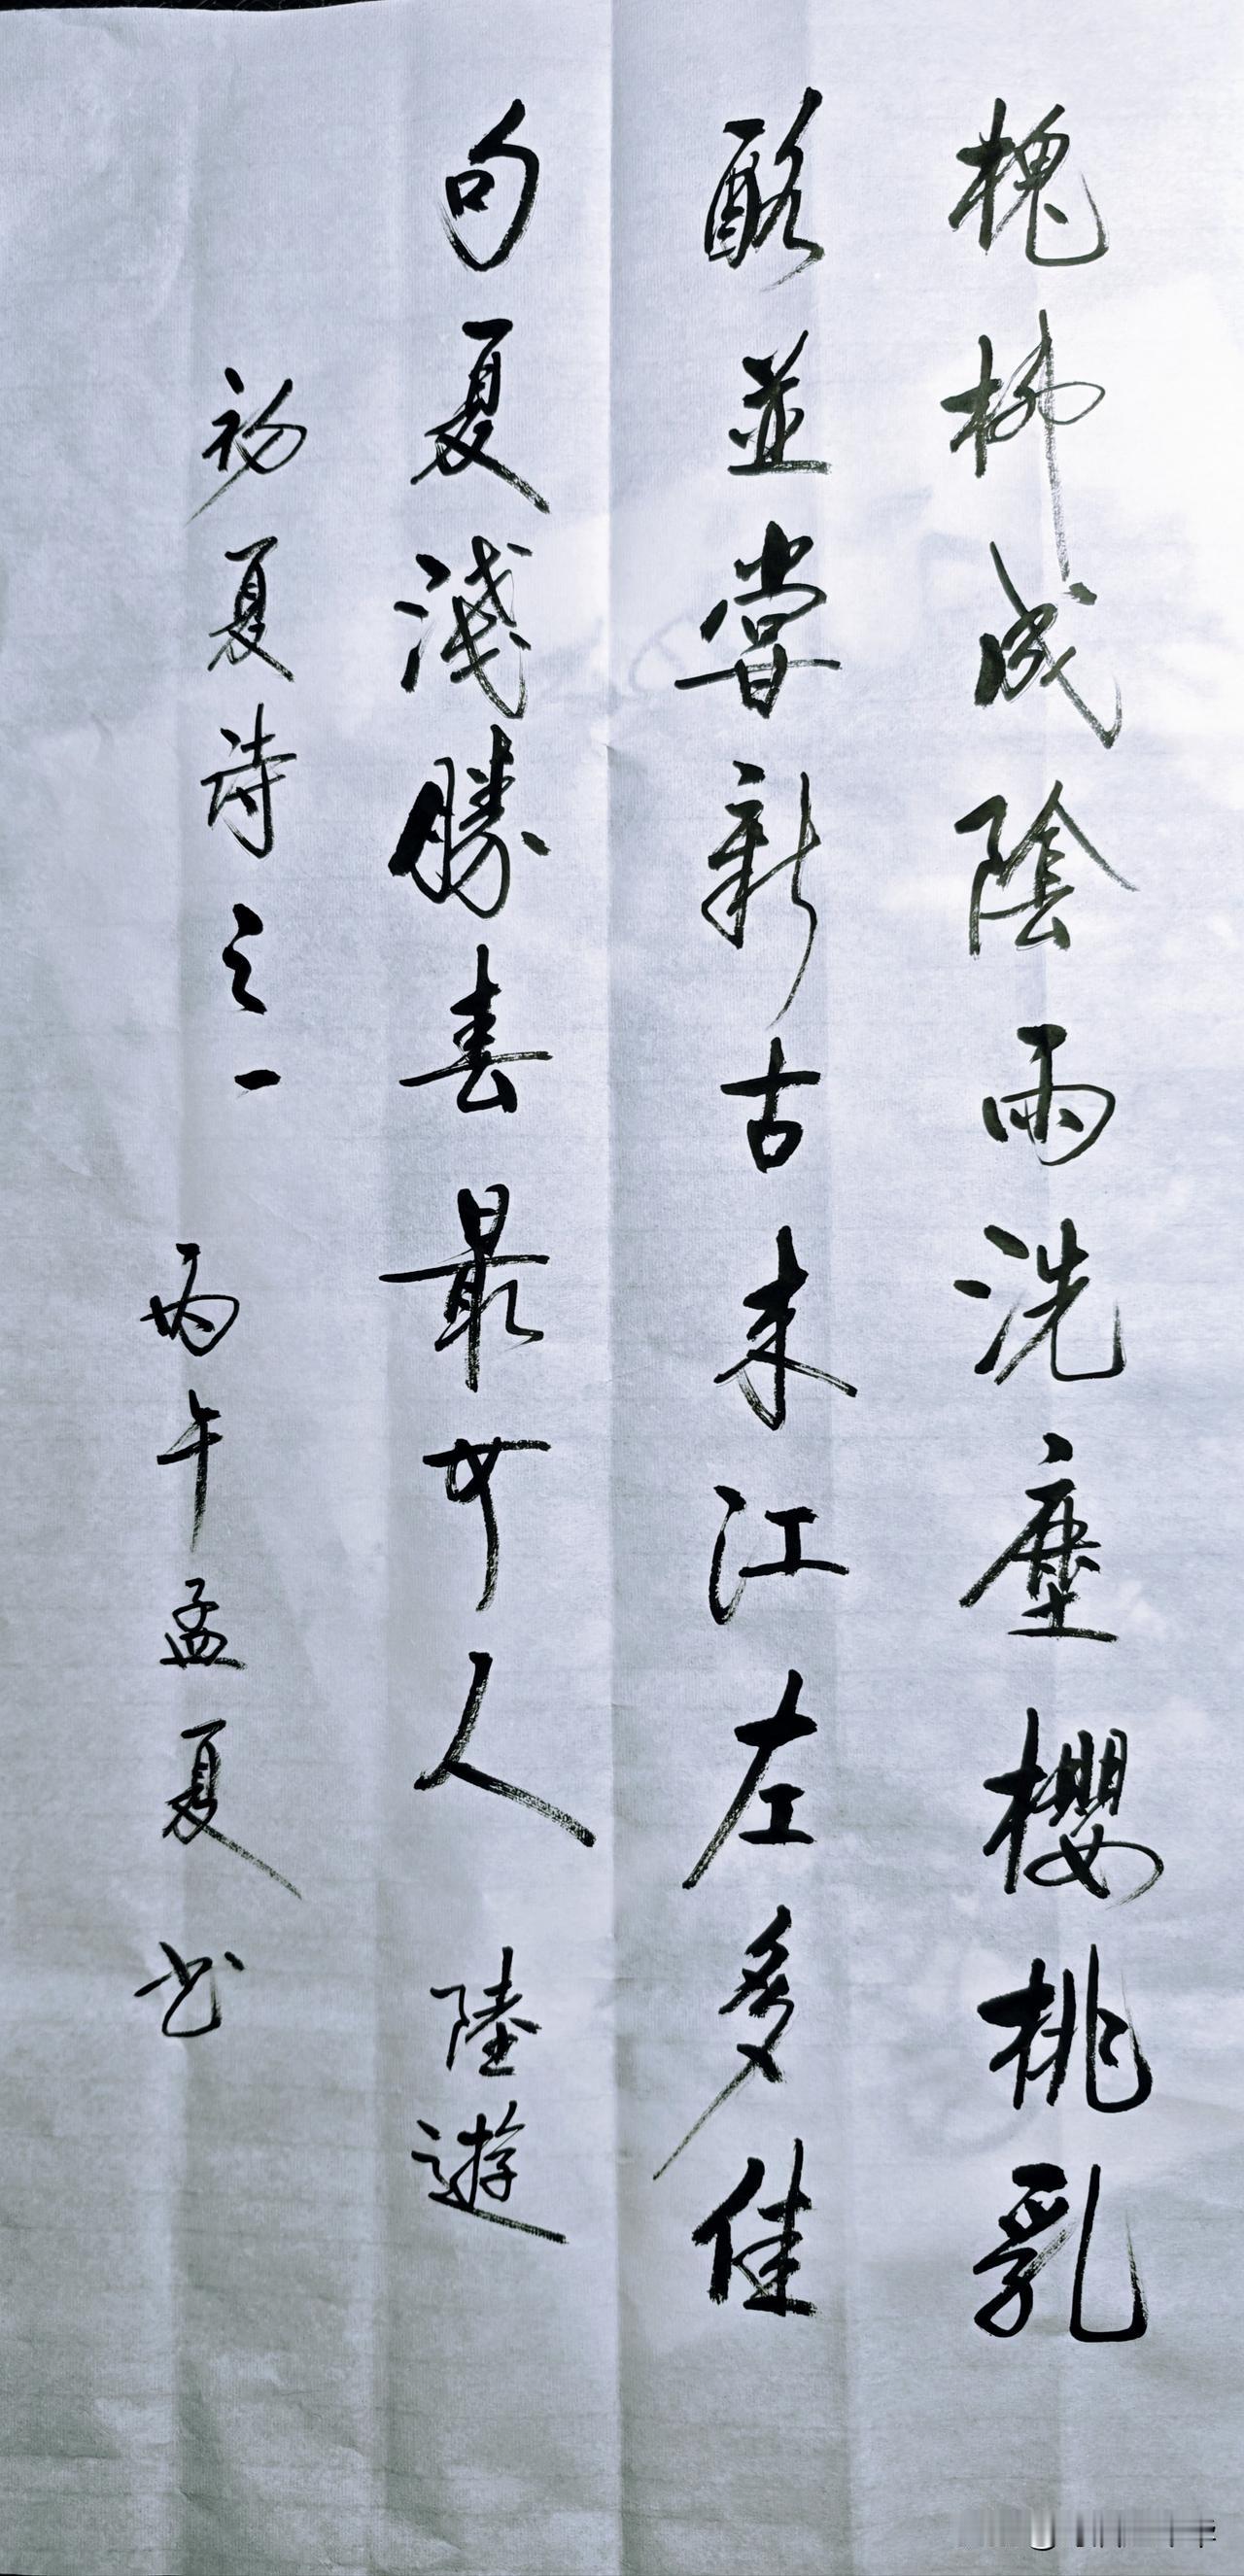 槐柳成陰雨洗塵櫻桃乳
酪並嘗新古来江左多佳
句夏淺勝春最可人 陸遊
初夏诗之一 丙午孟夏书